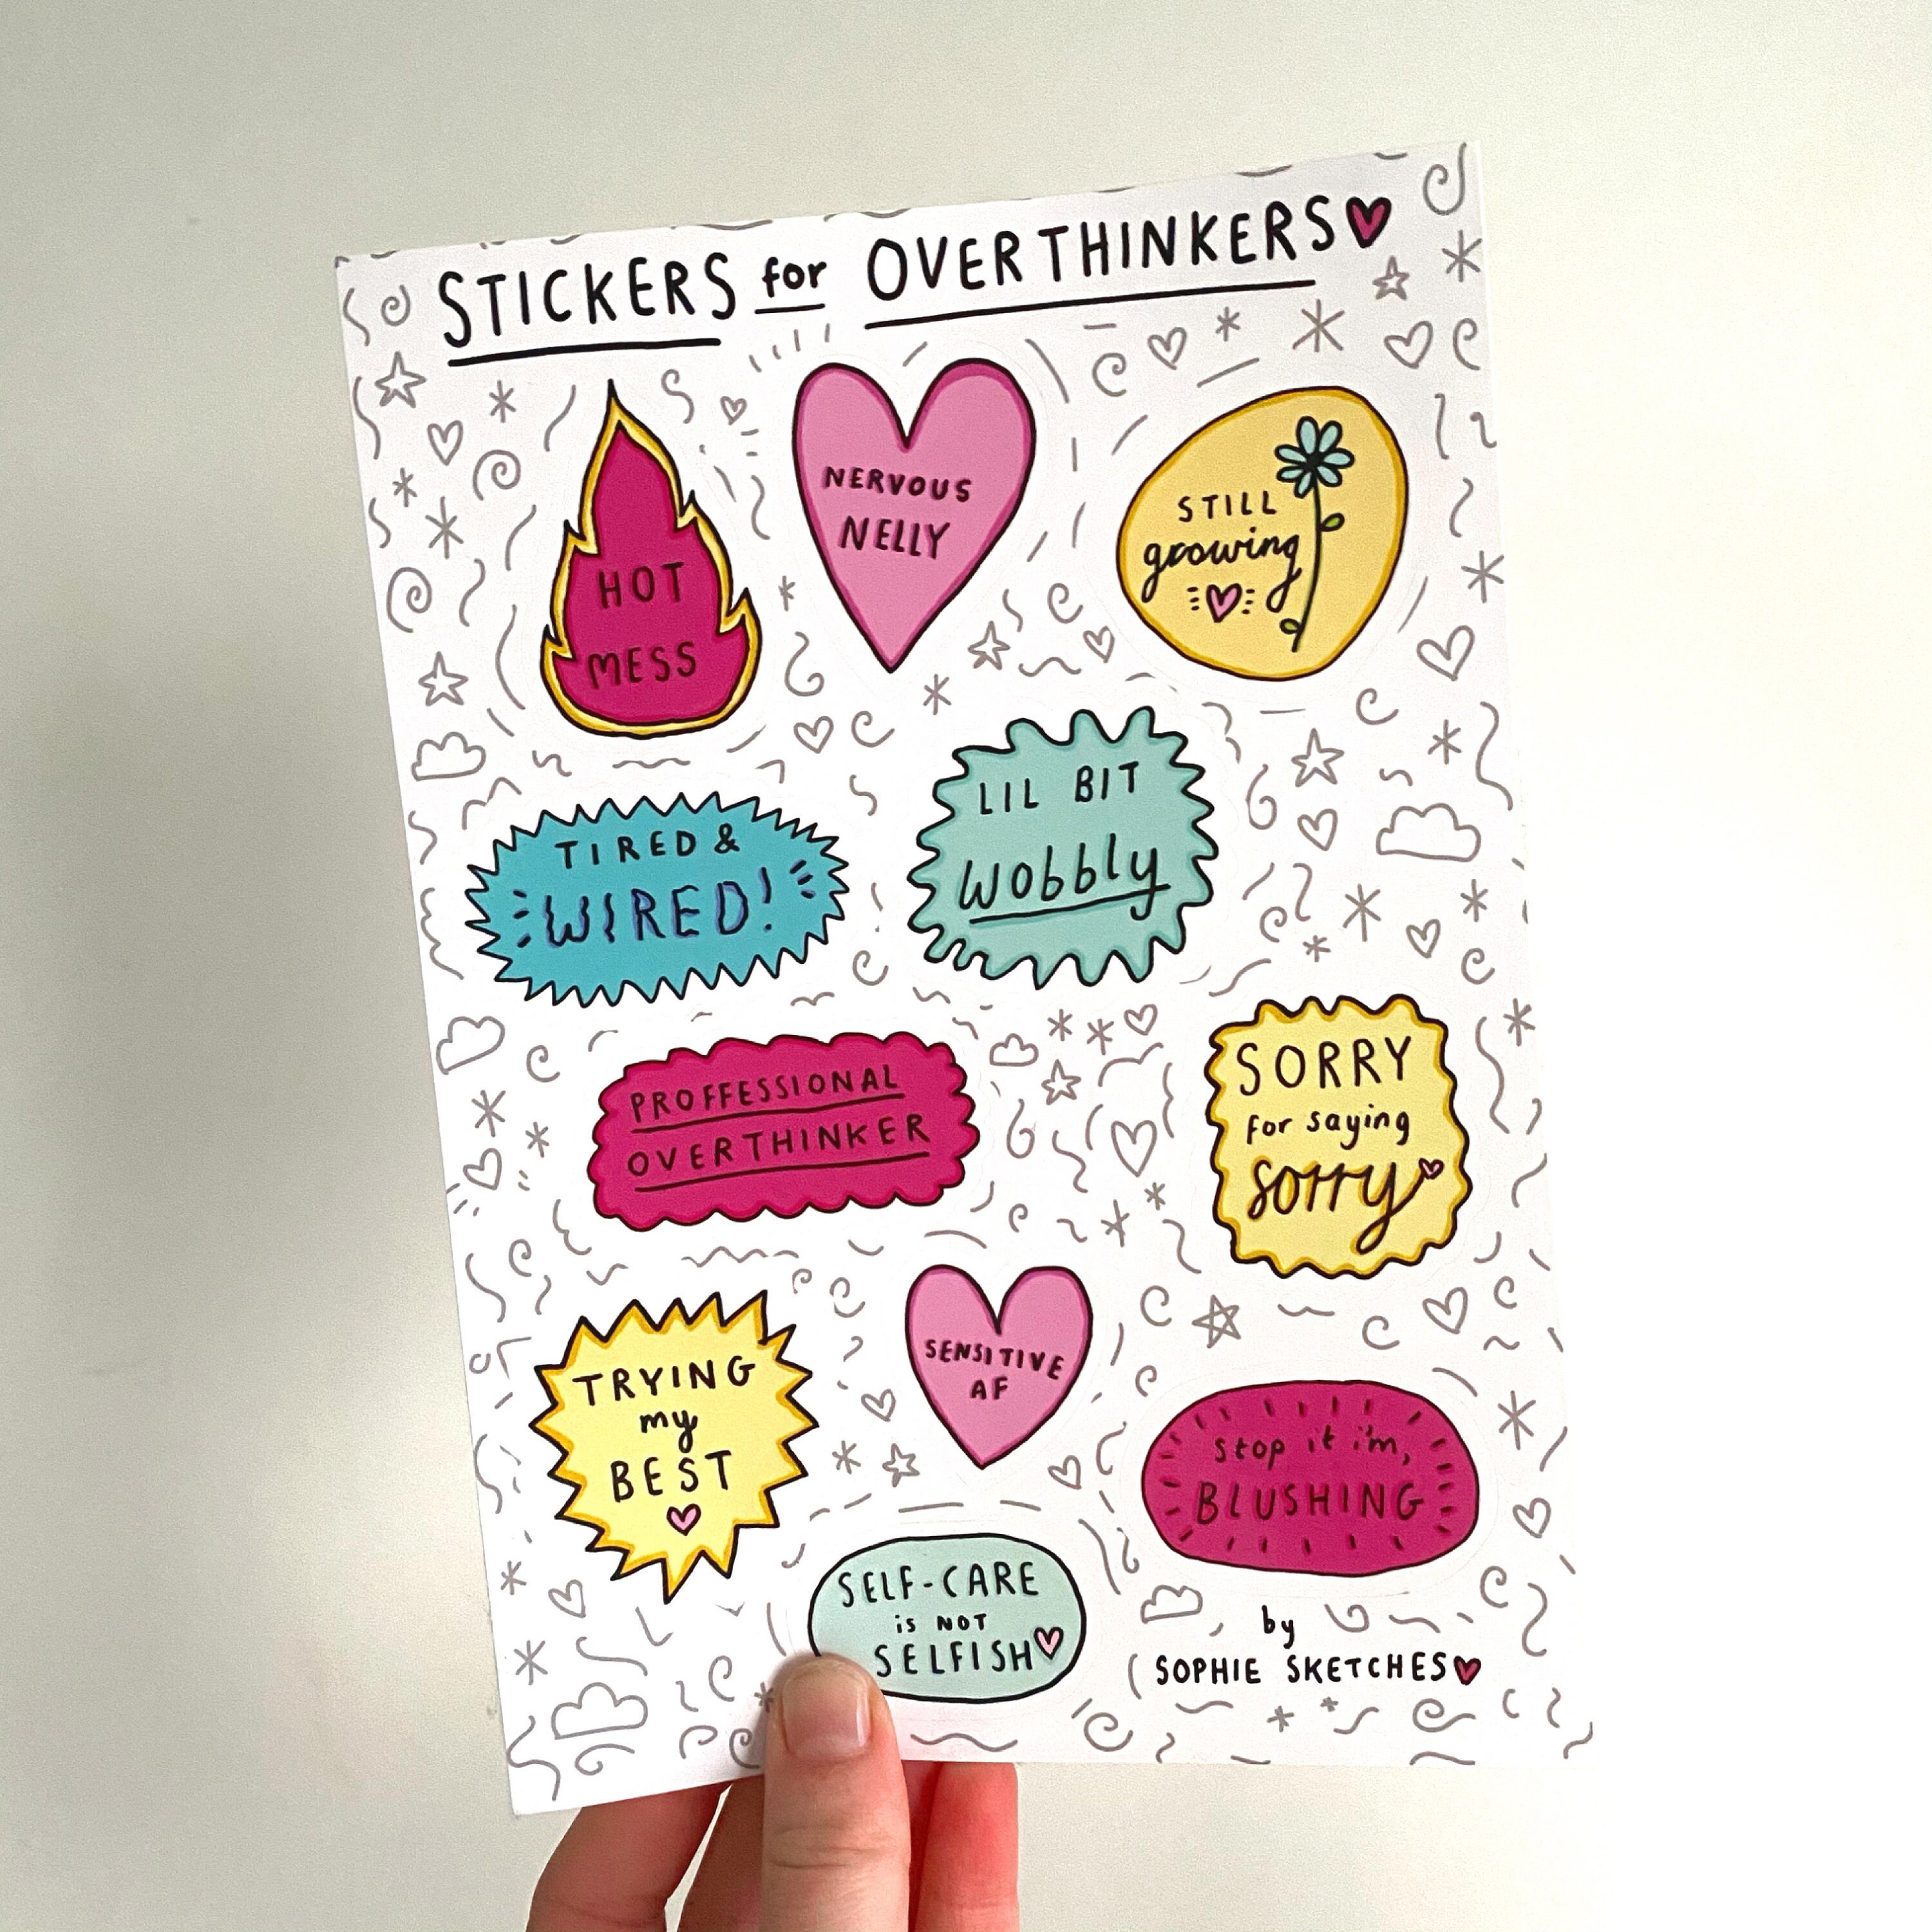 STICKERS for OVERTHINKERS
HOT
MESS
NERVOUS
NELLY
STILL
growing
TIRED &
WIRED!
LIL BIT
wobbly
PROFFESSIONAL
OVERTHINKER
SORRY
for saying
sorry
TRYING
my
BEST
SENSITIVE
AF
stop it i'm,
BLUSHING
SELF-CARE
is NOT
SELFISH
by
SOPHIE SKETCHES